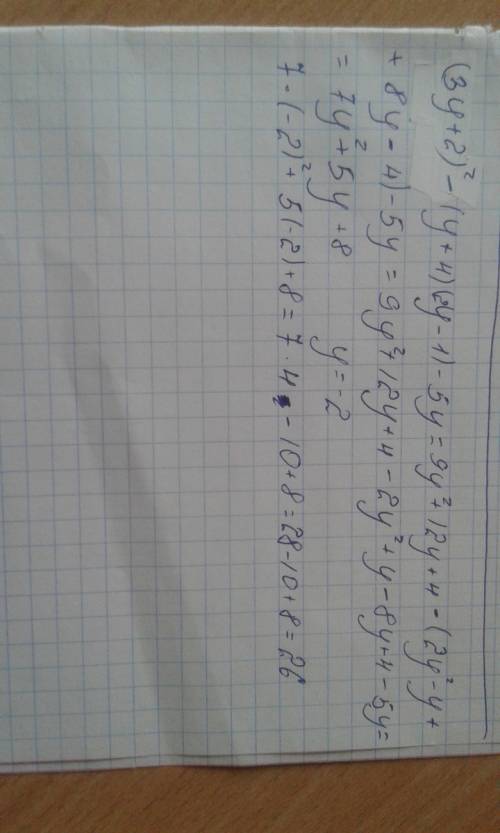 (3y+2)² - (y+4)(2y-1) - 5y = 9y² + 12y + 4 - (2y² - y +
+ 8y - 4) - 5y = 9y² + 12y + 4 - 2y² + y - 8y + 4 - 5y =
= 7y² + 5y + 8 y = -2
7 · (-2)² + 5(-2) + 8 = 7 · 4 - 10 + 8 = 28 - 10 + 8 = 26